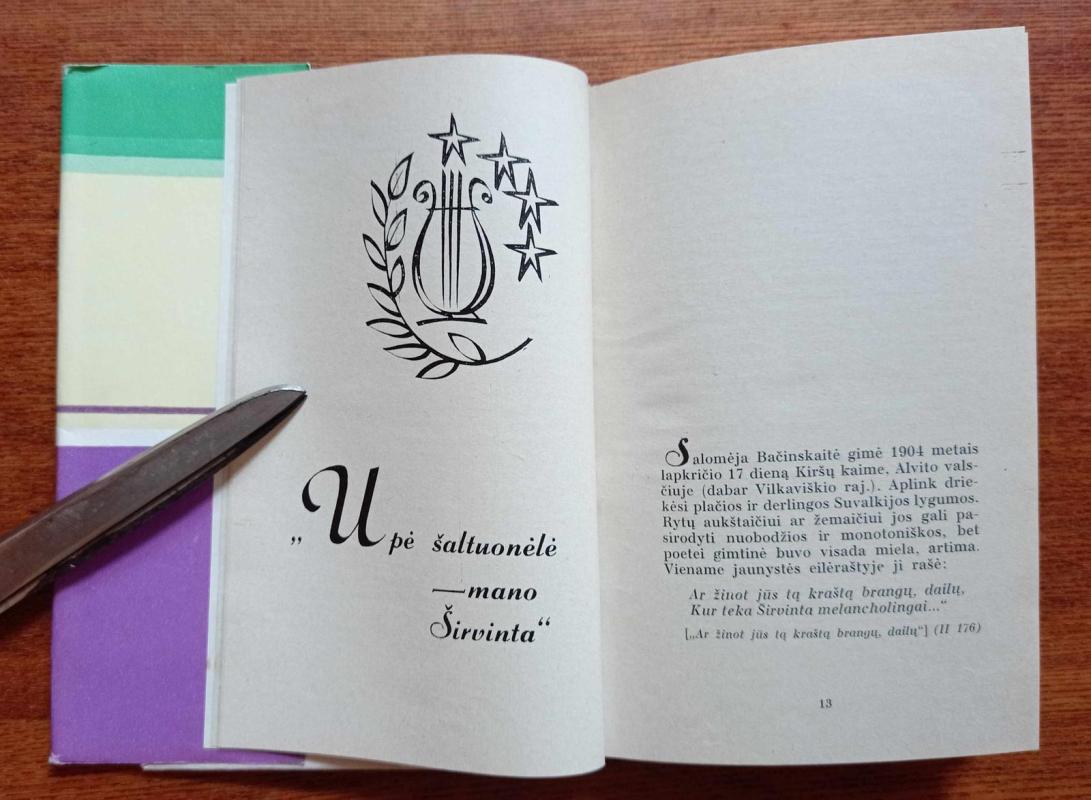 „Upė šaltuonėlė
—mano
Širvinta“
Salomėja Bačinskaitė gimė 1904 metais
lapkričio 17 dieną Kiršų kaime, Alvito vals-
čiuje (dabar Vilkaviškio raj.). Aplink drie-
kėsi plačios ir derlingos Suvalkijos lygumos.
Rytų aukštaičiui ar žemaičiui jos gali pa-
sirodyti nuobodžios ir monotoniškos, bet
poetei gimtinė buvo visada miela, artima.
Viename jaunystės eilėraštyje ji rašė:
Ar žinot jūs tą kraštą brangų, dailų,
Kur teka Širvinta melancholingai...“
[„Ar žinot jūs tą kraštą brangų, dailų“] (II 176)
13